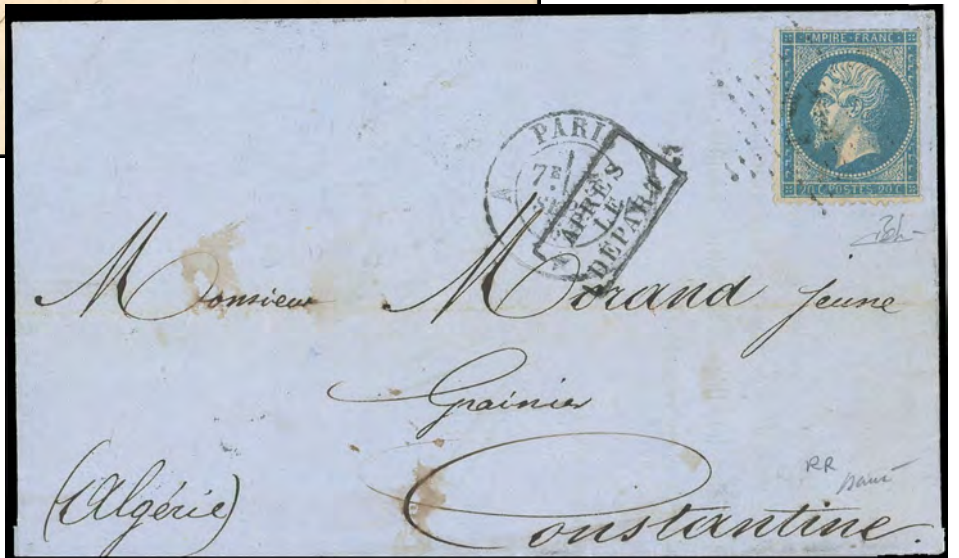 EMPIRE · FRANC ·
20 C POSTES 20 C
PARIS
A
7E
APRÈS
LE
DÉPART
Monsieur Morand Jeune
Grainier
(Algérie) Constantine.
RR